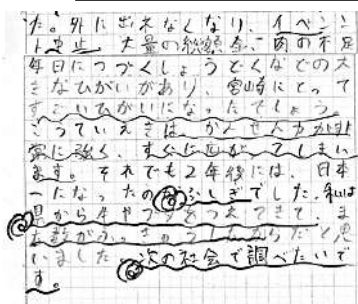 た。外に出れなくなり、イベン
ト中止、大量の殺処分、肉の不足
毎日につづくしょうどくなどの大
きなひがいがあり、宮崎にとって
すごいひがいになったでしょう。
こうていえきは、かんせん力が非
常に強く、すぐに広がってしまい
ます。それでも2年後には、日本
一になったのがふしぎでした。私は
県から牛やブタをつれてきて、ま
た数が
いました。次の社会で調べたいで
す。